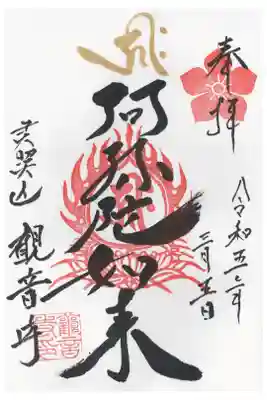 奉拝
令和五年
三月五日
阿弥陀如来
山 観音寺